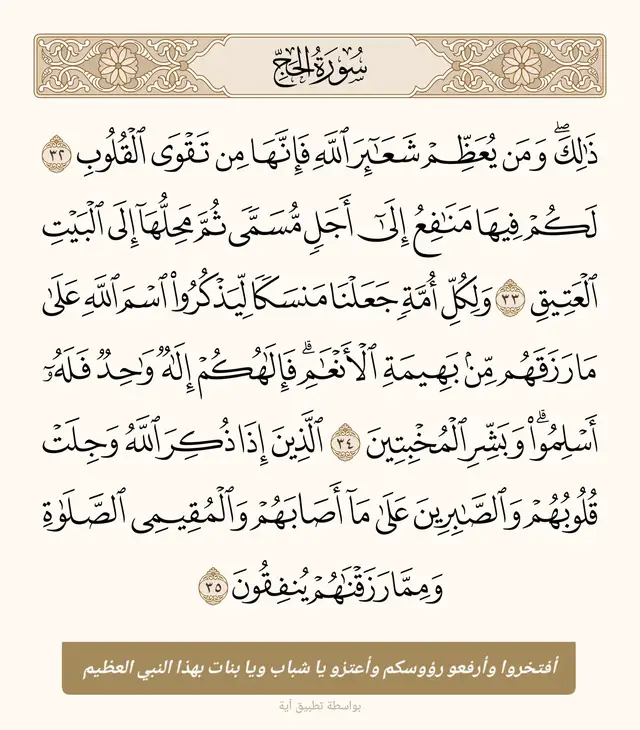 سُورَةُ الحَجِّ
ذَٰلِكَۖ وَمَن يُعَظِّمۡ شَعَٰٓئِرَ ٱللَّهِ فَإِنَّهَا مِن تَقۡوَى ٱلۡقُلُوبِ ٣٢
لَكُمۡ فِيهَا مَنَٰفِعُ إِلَىٰٓ أَجَلٖ مُّسَمّٗى ثُمَّ مَحِلُّهَآ إِلَى ٱلۡبَيۡتِ
ٱلۡعَتِيقِ ٣٣ وَلِكُلِّ أُمَّةٖ جَعَلۡنَا مَنسَكٗا لِّيَذۡكُرُواْ ٱسۡمَ ٱللَّهِ عَلَىٰ
مَا رَزَقَهُم مِّنۢ بَهِيمَةِ ٱلۡأَنۡعَٰمِۗ فَإِلَٰهُكُمۡ إِلَٰهٞ وَٰحِدٞ فَلَهُۥٓ
أَسۡلِمُواْۗ وَبَشِّرِ ٱلۡمُخۡبِتِينَ ٣٤ ٱلَّذِينَ إِذَا ذُكِرَ ٱللَّهُ وَجِلَتۡ
قُلُوبُهُمۡ وَٱلصَّٰبِرِينَ عَلَىٰ مَآ أَصَابَهُمۡ وَٱلۡمُقِيمِي ٱلصَّلَوٰةِ
وَمِمَّا رَزَقۡنَٰهُمۡ يُنفِقُونَ ٣٥
أفتخروا وأرفعو رؤوسكم وأعتزو يا شباب ويا بنات بهذا النبي العظيم
بواسطة تطبيق آية